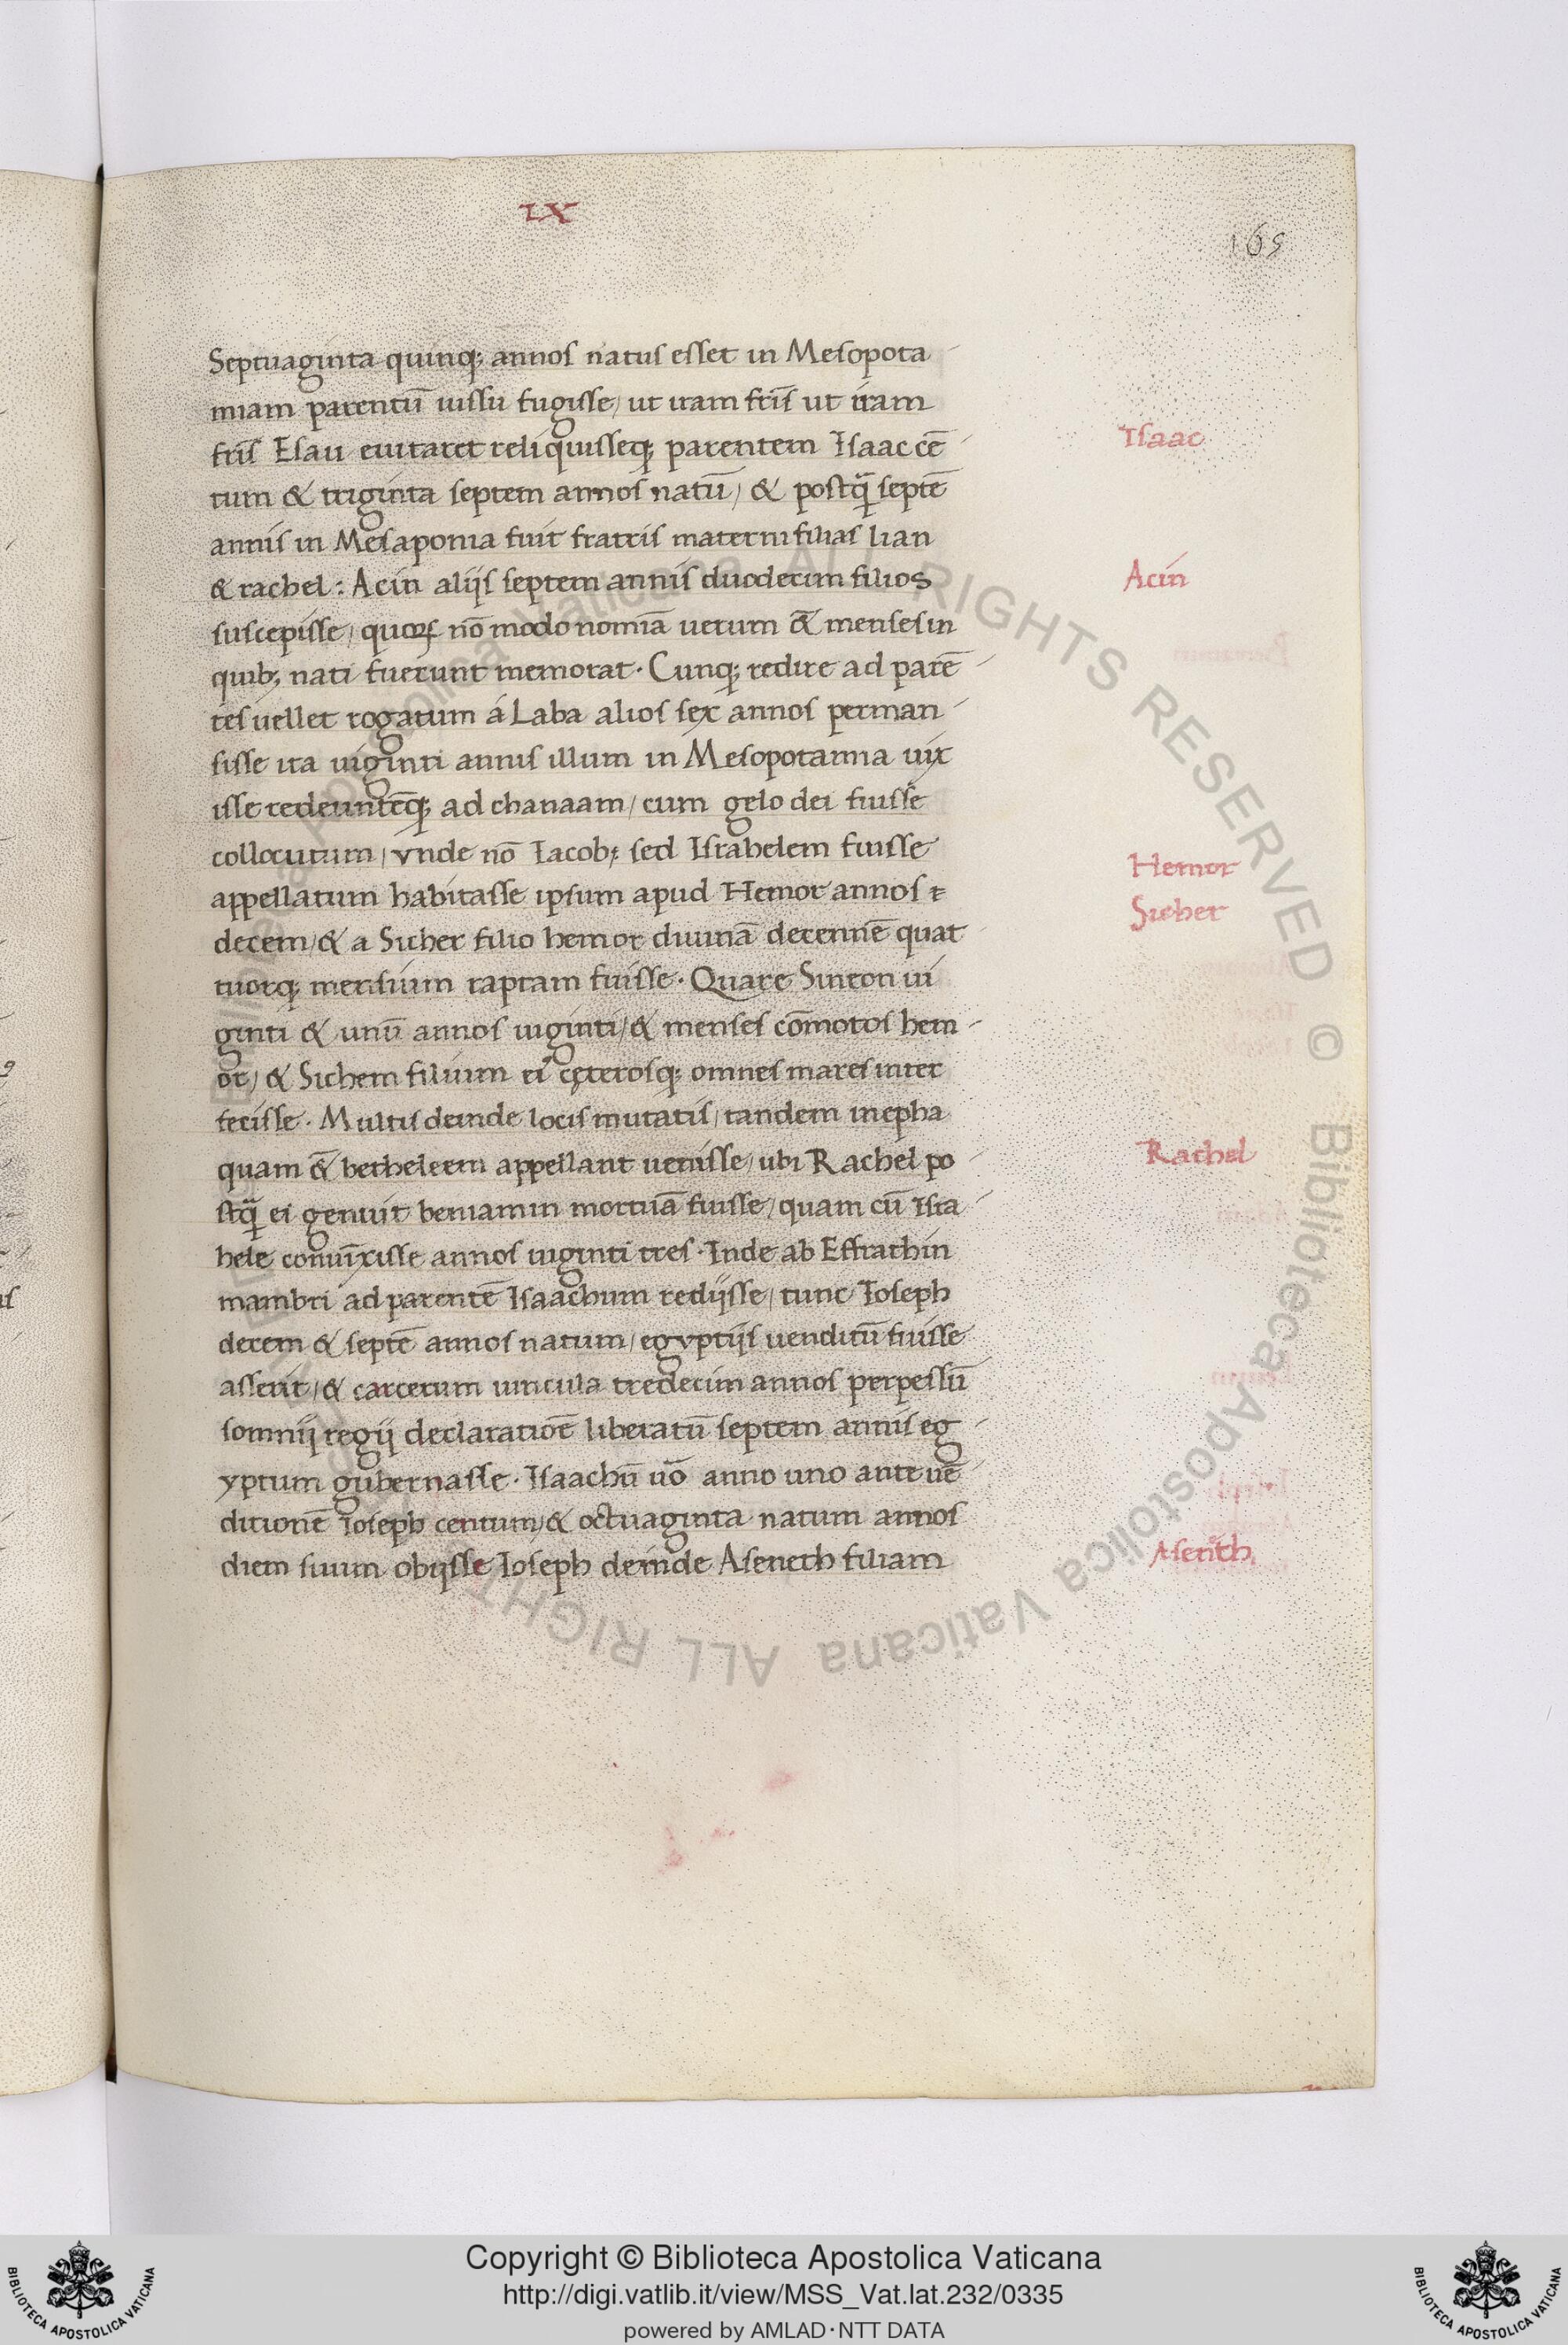 IX
165
Septuaginta quinq; annos natus esset in Mesopota-
miam parentū iussu fugisse, ut iram fr̄is ut iram
fr̄is Esau euitaret reliquisseq; parentem Isaac cē-
Isaac
tum & triginta septem annos natū, & postq̄ septē
annis in Mesaponia fuit fratris materni filias lian
& rachel: Acin alijs septem annis duodecim filios
Acin
suscepisse, quoꝝ nō modo nomīa uerum & menses in
quib; nati fuerunt memorat. Cunq; redire ad parē-
tes uellet rogatum á Laba alios sex annos perman-
sisse ita uiginti annis illum in Mesopotamia uix
isse redeuntēq; ad chanaam, cum gelo dei fuisse
collocutum, vnde nō Iacob; sed Israhelem fuisse
appellatum habitasse ipsum apud Hemor annos
Hemor
decem, & a Sicher filio hemor diuinā decennē quat
Sicher
tuorq; mensium raptam fuisse. Quare Simeon ui
ginti & unū annos uiginti, & menses cōmotos hem-
or, & Sichem filium ei᾽ cęterosq; omnes mares inter
fecisse. Multis deinde locis mutatis, tandem in epha
quam & betheleem appellant uenisse, ubi Rachel po-
Rachel
stq̄ ei genuit beniamin mortuā fuisse, quam cū Isra-
hele conuīxisse annos uiginti tres. Inde ab Effrathin
mambri ad parentē Isaachum redijsse, tunc Ioseph
decem & septē annos natum, egyptijs uenditū fuisse
asserit, & carcerum uincula tredecim annos perpessū
somnij regij declarationē liberatū septem annis eg-
yptum gubernasse. Isaachū uō anno uno ante uē-
ditionē Ioseph centum, & octuaginta natum annos
diem suum obijsse Ioseph deinde Aseneth filiam
Asenēth
Copyright © Biblioteca Apostolica Vaticana
http://digi.vatlib.it/view/MSS_Vat.lat.232/0335
powered by AMLAD·NTT DATA
BIBLIOTECA APOSTOLICA VATICANA
BIBLIOTECA APOSTOLICA VATICANA